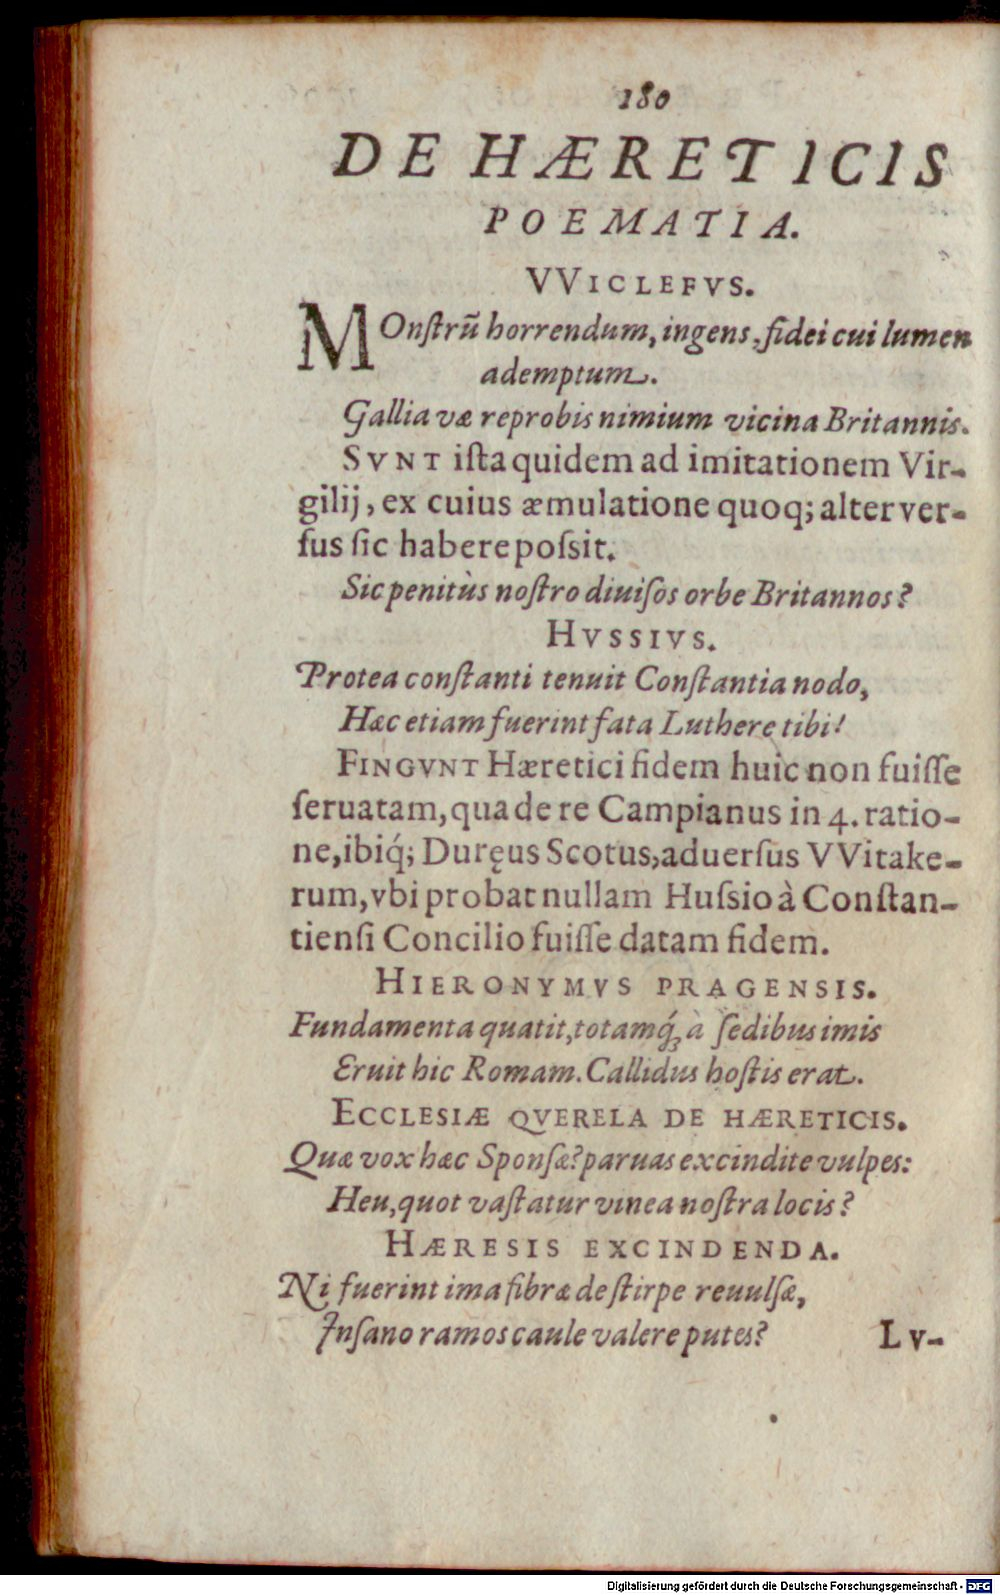 180
DE HÆRETICIS
POEMATIA.
VVICLEFVS.
MOnſtrũ horrendum, ingens, fidei cui lumen
ademptum.
Gallia væ reprobis nimium vicina Britannis.
SVNT iſta quidem ad imitationem Vir-
gilij, ex cuius æmulatione quoq; alter ver-
ſus ſic habere poſsit.
Sic penitùs noſtro diuiſos orbe Britannos?
HVSSIVS.
Protea conſtanti tenuit Conſtantia nodo,
Hæc etiam fuerint fata Luthere tibi!
FINGVNT Hæretici fidem huic non fuiſſe
ſeruatam, qua de re Campianus in 4. ratio-
ne, ibiq́; Duręus Scotus, aduerſus VVitake-
rum, vbi probat nullam Huſsio à Conſtan-
tienſi Concilio fuiſſe datam fidem.
HIERONYMVS PRAGENSIS.
Fundamenta quatit, totamq́ꝫ à ſedibus imis
Eruit hic Romam. Callidus hoſtis erat.
ECCLESIÆ QVERELA DE HÆRETICIS.
Quæ vox hæc Sponſæ? paruas excindite vulpes:
Heu, quot vaſtatur vinea noſtra locis?
HÆRESIS EXCINDENDA.
Ni fuerint ima fibræ de ſtirpe reuulſæ,
Inſano ramos caule valere putes?
LV-
Digitalisierung gefördert durch die Deutsche Forschungsgemeinschaft - DFG